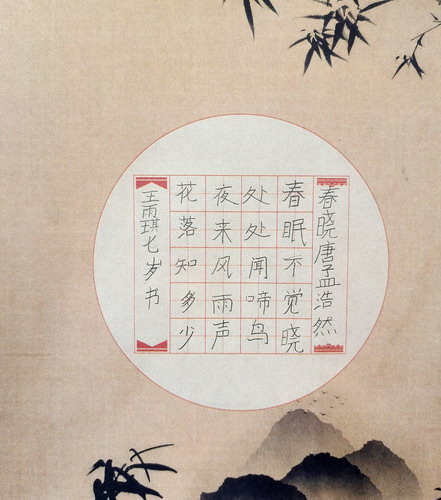 春晓唐孟浩然
春眠不觉晓
处处闻啼鸟
夜来风雨声
花落知多少
王雨琪七岁书